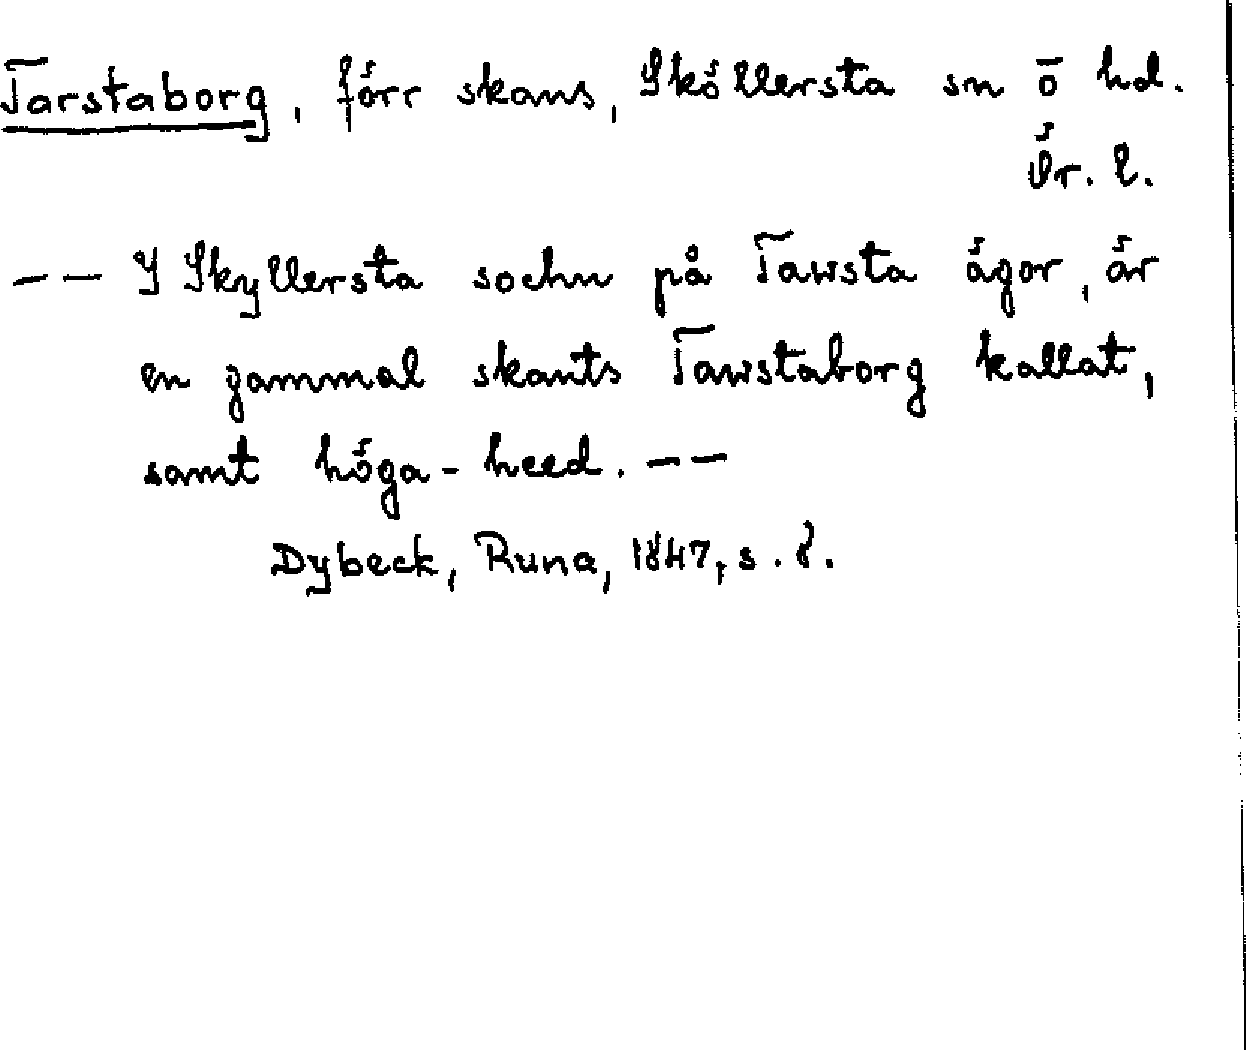 Tarstaborg, förr skans, Sköllersta sn ö hd.
Ör. l.
–– I Skyllersta sochn på Tawsta ägor, är
en gammal skants Tawstaborg kallat,
samt höga-heed. ––
Dybeck, Runa, 1847, s. 8.